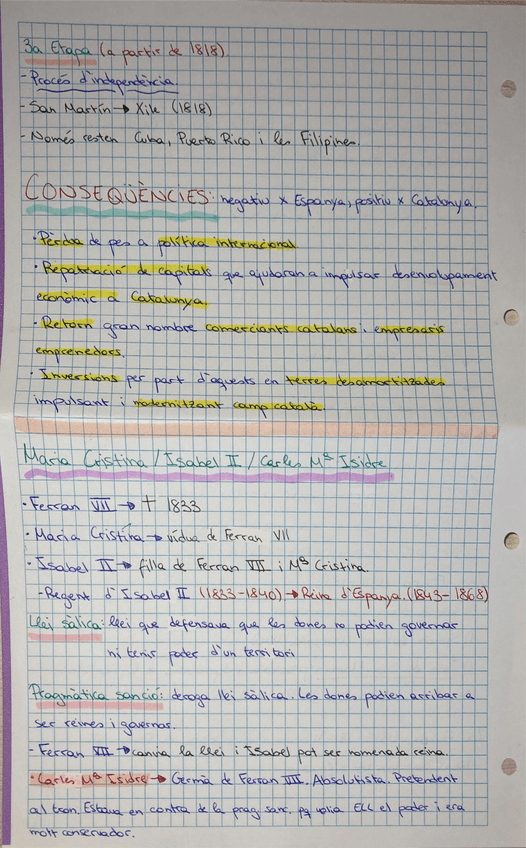 3a Etapa (a partir de 1818)
- Procés d'independència.
- San Martín → Xile (1818)
- Només resten Cuba, Puerto Rico i les Filipines.
CONSEQÜÈNCIES: negatiu x Espanya, positiu x Catalunya.
· Pèrdua de pes a política internacional
· Repatriació de capitals que ajudaran a impulsar desenvolupament
econòmic a Catalunya.
· Retorn gran nombre comerciants catalans i empresaris
emprenedors.
· Inversions per part d'aquests en terres desamortitzades
impulsant i modernitzant camp català.
Maria Cristina / Isabel II / Carles Mª Isidre
· Ferran VII → † 1833
· Maria Cristina → vídua de Ferran VII
· Isabel II → filla de Ferran VII i Mª Cristina.
- Regent d'Isabel II (1833-1840) → Reina d'Espanya. (1843-1868)
Llei sàlica: llei que defensava que les dones no podien governar
ni tenir poder d'un territori
Pragmàtica sanció: deroga llei sàlica. Les dones podien arribar a
ser reines i governar.
- Ferran VII → canvia la llei i Isabel pot ser nomenada reina.
· Carles Mª Isidre → Germà de Ferran VII. Absolutista. Pretendent
al tron. Estava en contra de la prag. sanc. pq volia ELL el poder i era
molt conservador.